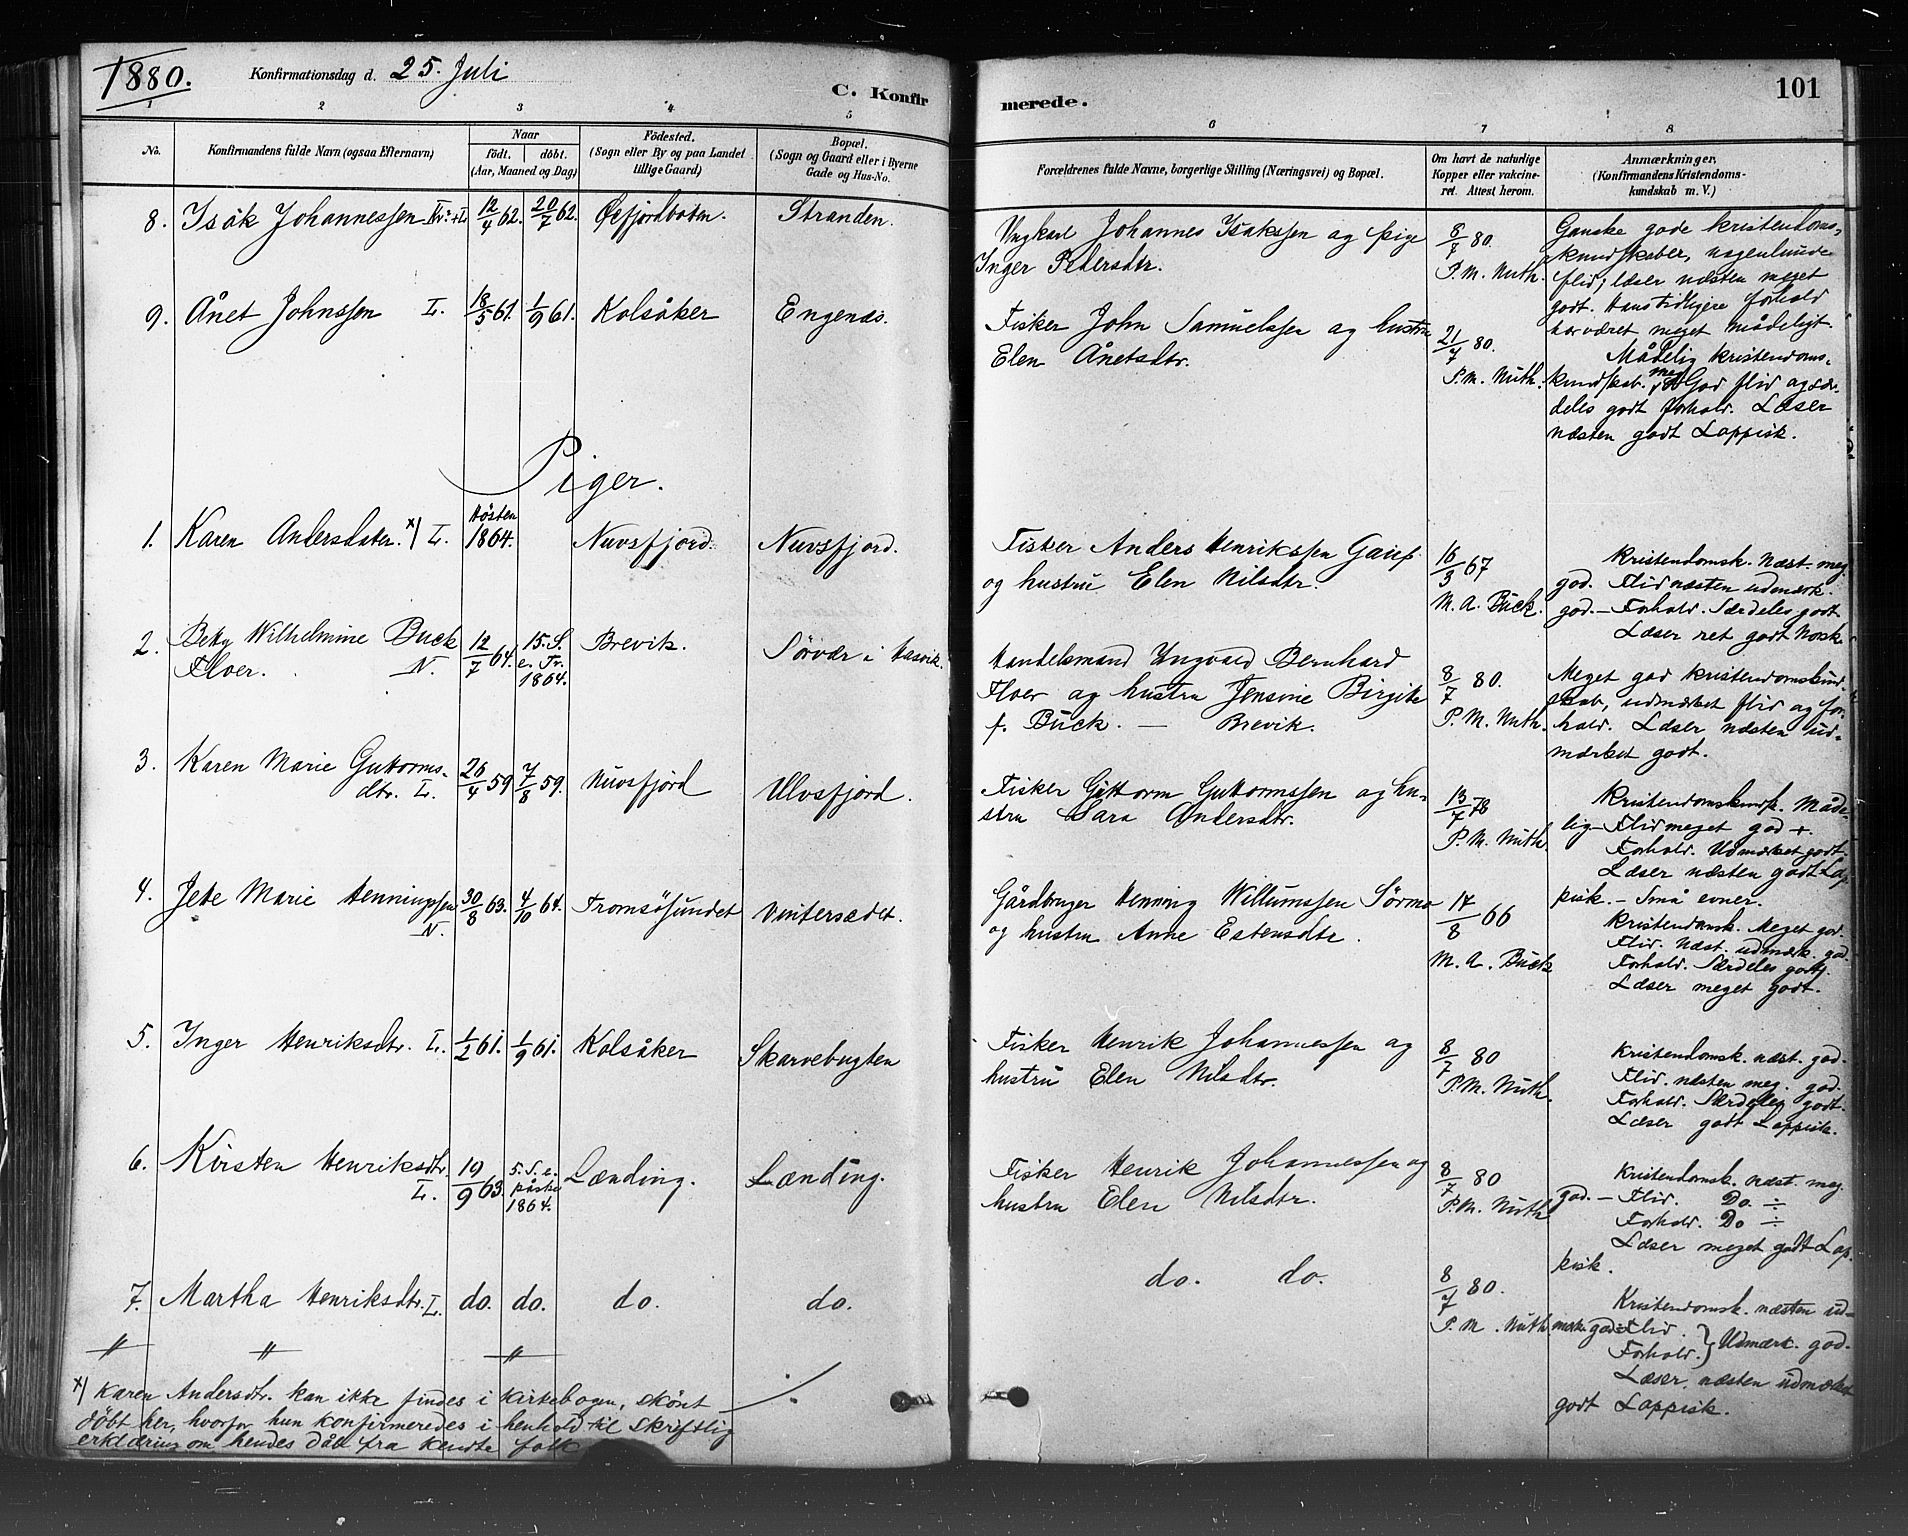 1880. Konfirmationsdag d. 25. Juli
C. Konfir
merede.
101
1 2 3 4 5 6 7 8.
No.
Konfirmandens fulde Navn (ogsaa Efternavn)
Naar
født. døbt.
(Aar, Maaned og Dag)
Fødested.
(Sogn eller By og paa Landet
tillige Gaard)
Bopæl.
(Sogn og Gaard eller i Byerne
Gade og Hus-No.
Forældrenes fulde Navne, borgerlige Stilling (Næringsvei) og Bopæl.
Om havt de naturlige
Kopper eller vakcine-
ret. Attest herom.
Anmærkninger.
(Konfirmandens Kristendoms-
kundskab m. V.)
8. Isak Johannessen Kv. + L. 12/4 62. 20/7 62. Øxfjordbotn. Stranden.
Ungkarl Johannes Isakssen og pige
Inger Pedersdtr.
8/7 80.
P. M. Nuth.
Ganske gode kristendoms-
kundskaber, nogenlunde
flid; læser næsten meget
godt. Hans tidligere forhold
har været meget mådeligt.
9. Ånet Johnssen L. 18/5 61. 1/9 61. Kolsåker Engenæs.
Fisker John Samuelssen og hustru
Elen Ånetsdtr.
21/7 80.
P. M. Nuth.
Mådelig kristendoms-
kundskab. meg. God flid og sær-
deles godt forhold. Læser
næsten godt Lappisk.
Piger.
1. Karen Andersdater. x) L. Høsten 1864. Nuvsfjord. Nuvsfjord.
Fisker Anders Henrikssen Gaup
og hustru Elen Nilsdtr.
16/3 67
M. A. Buck.
Kristendomsk. næst. meg.
god. Flid næsten udmærk.
god. – Forhold. Særdeles godt
Læser ret godt Norsk
2. Beky Wilhelmine Buck
Floer. N.
12/7 64. 15. S. e. Tr. 1864. Brevik. Sørvær i Hasvik.
Handelsmand Yngvald Bernhard
Floer og hustru Jensine Birgite
f. Buck. — Brevik.
8/7 80.
P. M. Nuth.
Meget god kristendomskund-
skab, udmærket flid og for-
hold. Læser næsten ud-
mærket godt.
3. Karen Marie Guttorms-
dtr. L.
26/4 59 7/8 59. Nuvsfjord Ulvsfjord.
Fisker Guttorm Guttormssen og hu-
stru Sara Andersdtr.
13/7 78
P. M. Nuth.
Kristendomskundsk. Måde-
lig – Flid meget god +.
Forhold. Udmærket godt.
Læser næsten godt Lap-
pisk. – Små evner.
4. Jete Marie Henningssen
N.
30/8 63. 4/10 64. Tromsøsundet Vintersædet.
Gårdbruger Henning Willumssen Sørmo
og hustru Anne Estensdtr.
17/8 66
M. A. Buck
Kristendomsk. Meget god.
Flid. Næst. udmærk. god.
Forhold. Særdeles godt.
Læser meget godt.
5. Inger Henriksdtr. L. 1/2 61. 1/9 61. Kolsåker Skarvebugten
Fisker Henrik Johannessen og
hustru Elen Nilsdtr.
8/7 80
P. M. Nuth.
Kristendomsk. næst. god.
Flid. næsten meg. god.
Forhold. Særdeles godt.
Læser godt Lappisk.
6. Kirsten Henriksdtr.
L.
19/9 63. 5. S. e. påske 1864. Lænding. Lænding.
Fisker Henrik Johannessen og
hustru Elen Nilsdtr.
8/7 80
P. M. Nuth
Kristendomsk. næst. meg.
god. – Flid. Do ÷
Forhold. Do ÷
Læser meget godt Lap-
pisk.
7. Martha Henriksdtr. L. do. do. do. do.
do. do.
8/7 80.
P. M. Nuth.
Kristendomsk. næsten ud-
mærk. god. Flid.
Forhold. } Udmærk. god.
Læser næsten udmærket
godt Lappisk.
" " "
x) Karen Andersdtr. kan ikke findes i kirkebogen, skönt
döbt her, hvorfor hun konfirmeredes i henhold til skriftlig
erklæring om hendes dåb fra kendte folk